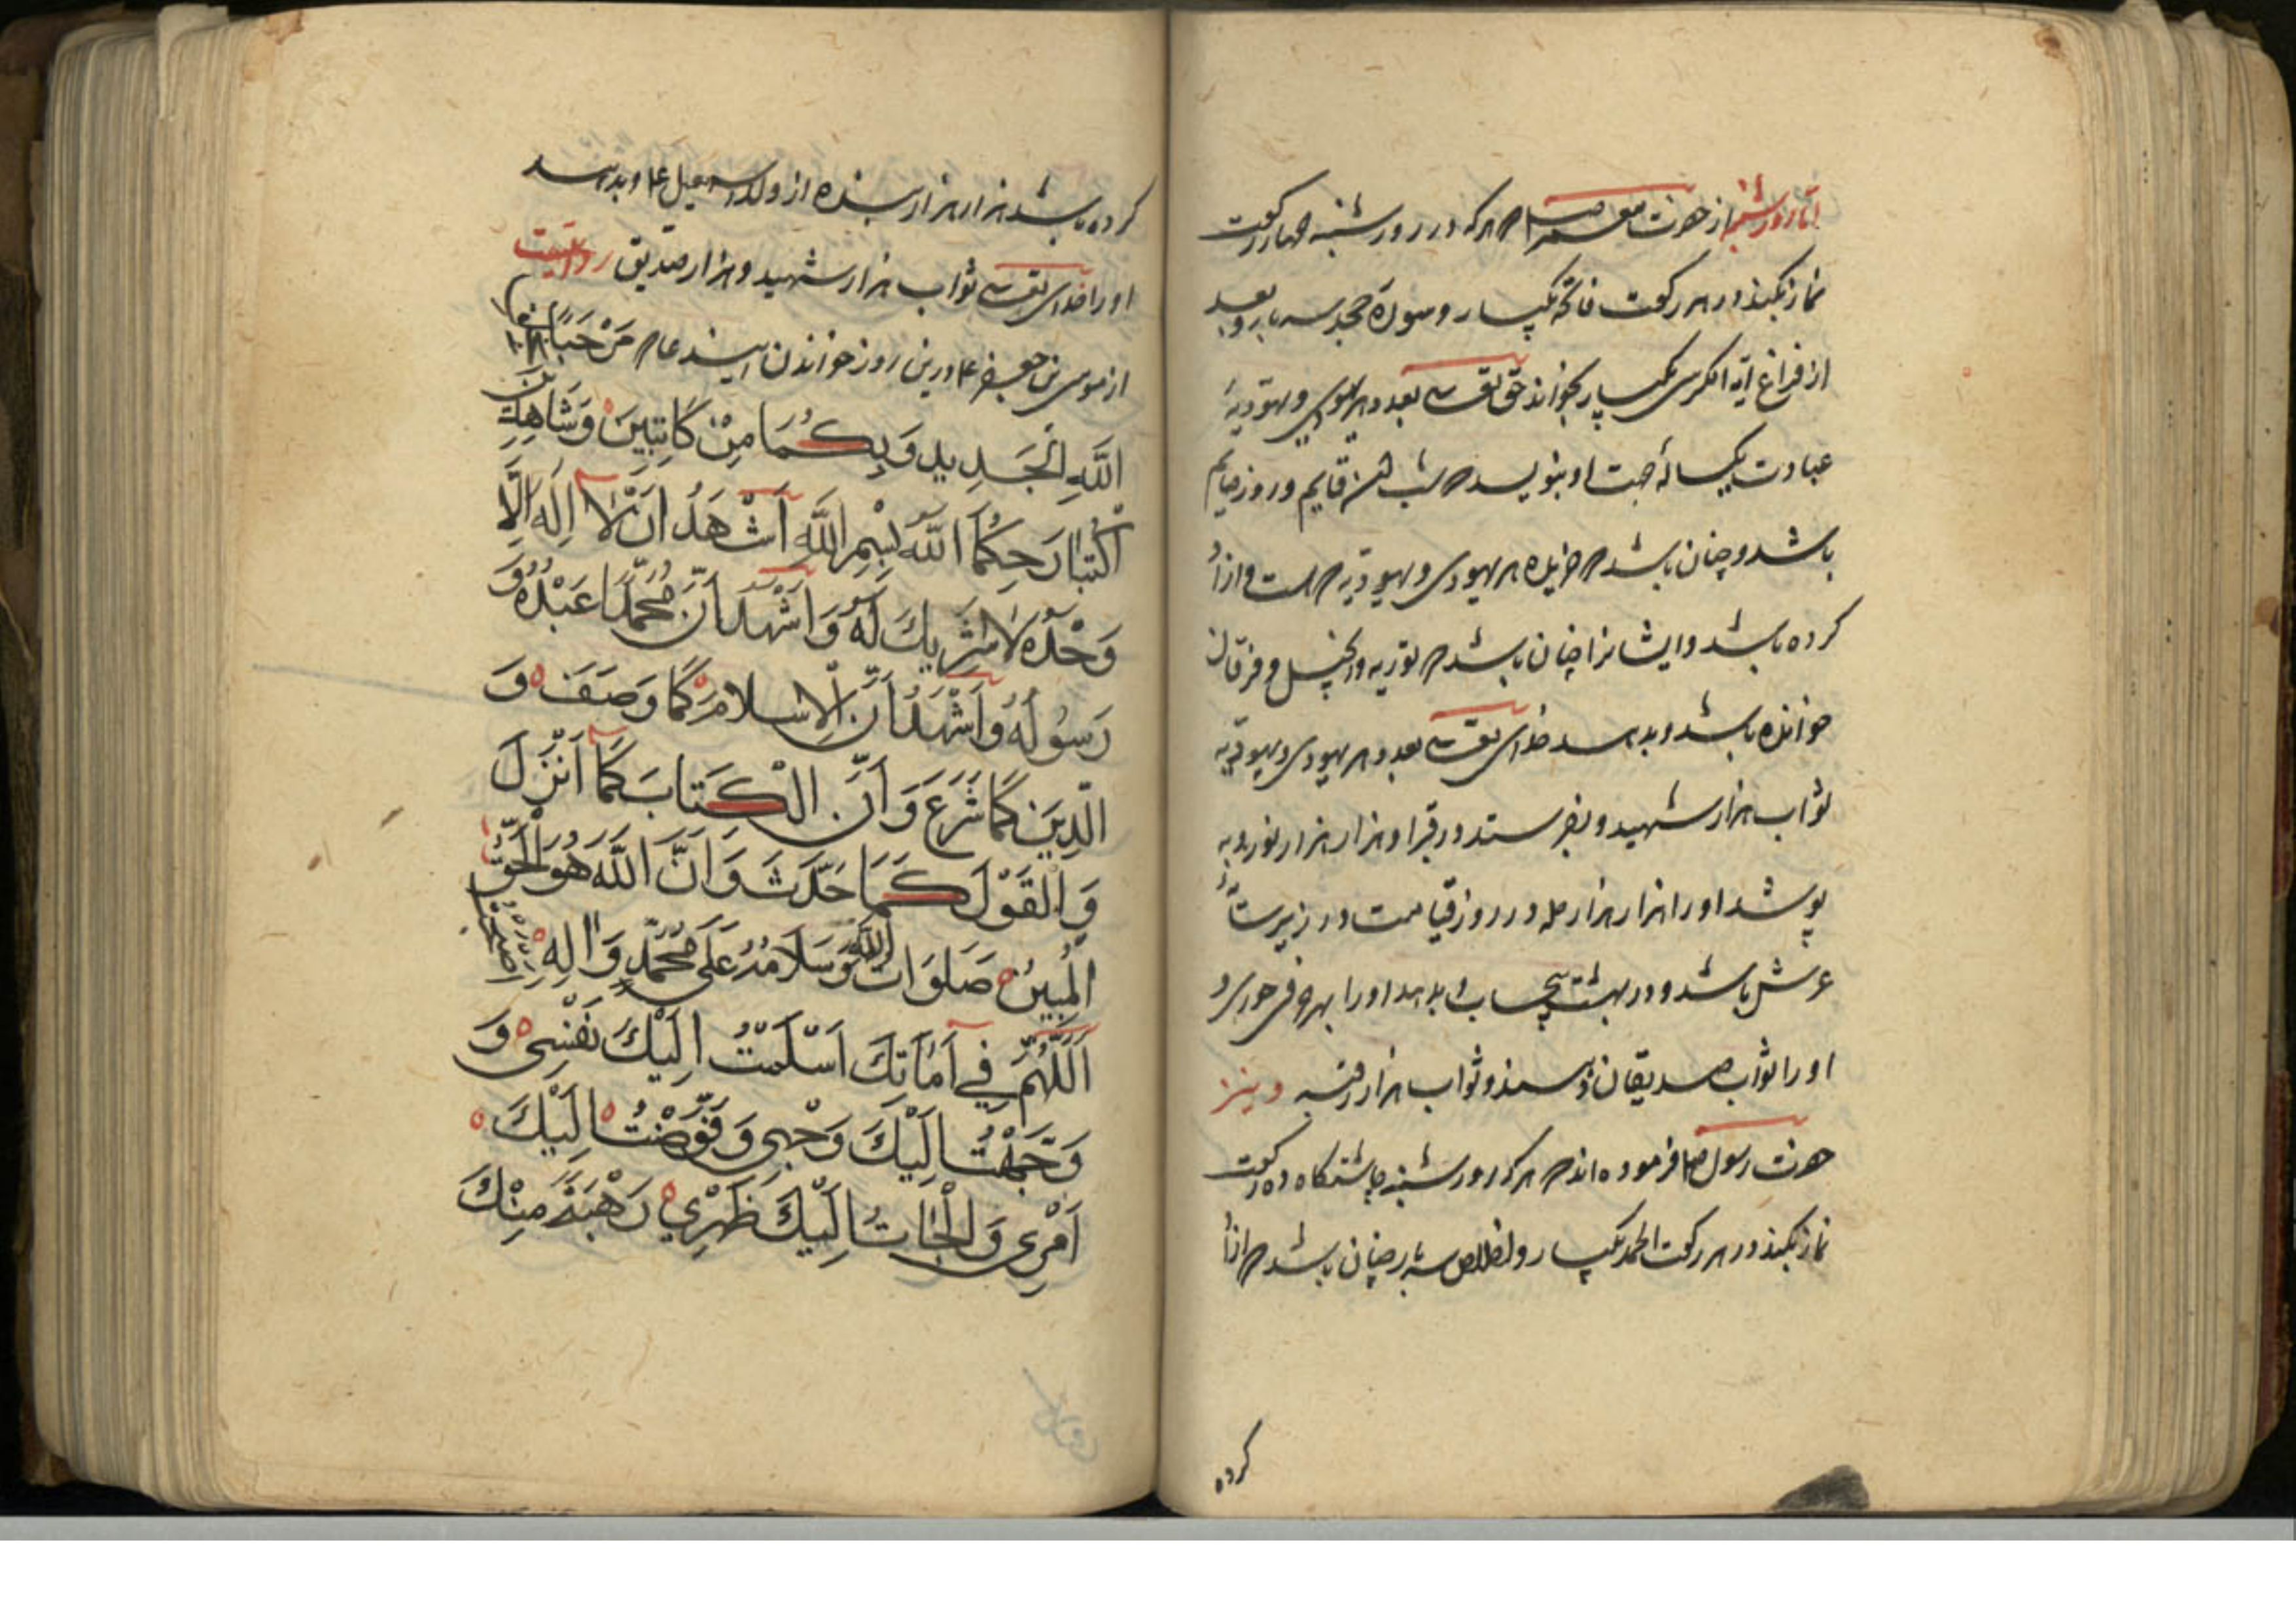 اما روز شنبه از حضرت پیغمبر صلم هر که در روز شنبه چهار رکعت
نماز بکند در هر رکعت فاتحه یکبار و سوره جحد سه بار و بعد
از فراغ ایة الکرسی یکبار بخواند حق تعالی بعدد هر یهودی و یهودیهٔ
عبادت یکساله جهت او بنویسد که شب قایم و روز صایم
باشد و چنان باشد که هر یهودی و یهودیه که است ازاد
کرده باشد و ایشانرا چنان باشد که توریة و انجیل و فرقان
خوانده باشد و بدهد خدای تعالی بعدد هر یهودی و یهودیه
ثواب هزار شهید و بفرستد در قبر او هزار هزار نور و به
پوشد او را هزار هزار حله و در روز قیامت در زیر
عرش باشد و در بهشت بیحساب و بدهد او را بهر حرفی حوری و
او را ثواب صدیقان نویسند و ثواب هزار رقبه و نیز
حضرت رسول صلم فرموده اند که هر که روز شنبه چاشتکاه ده رکعت
نماز بکند در هر رکعت الحمد یکبار و اخلاص سه بار چنان باشد که ازاد
کرده
کرده باشد هزار هزار بنده از ولد اسمعیل ع و بدهد
او را خدای تعالی ثواب هزار شهید و هزار صدیق روایتست
از موسی بن جعفر ع درین روز خواندن این دعا که مَرْحَبًا بخلق
اللَّهِ الْجَدِيدِ وَبِكُمَا مِنْ كَاتِبَيْنِ وَشَاهِدَيْنِ
اُكْتُبَا رَحِمَكُمَا اللَّهُ بِسْمِ اللَّهِ اَشْهَدُ اَنْ لَا اِلَهَ اِلَّا اللَّهُ
وَحْدَهُ لَا شَرِيكَ لَهُ وَاَشْهَدُ اَنَّ مُحَمَّدًا عَبْدُهُ وَ
رَسُولُهُ وَاَشْهَدُ اَنَّ الْاِسْلَامَ كَمَا وَصَفَ وَ
الدِّينَ كَمَا شَرَعَ وَاَنَّ الْكِتَابَ كَمَا اَنْزَلَ
وَالْقَوْلَ كَمَا حَدَّثَ وَاَنَّ اللَّهَ هُوَ الْحَقُّ
الْمُبِينُ صَلَوَاتُ اللَّهِ وَسَلَامُهُ عَلَى مُحَمَّدٍ وَالِهِ اَصْبَحْتُ
اَللَّهُمَّ فِي اَمَانِكَ اَسْلَمْتُ اِلَيْكَ نَفْسِي وَ
وَجَّهْتُ اِلَيْكَ وَجْهِي وَفَوَّضْتُ اِلَيْكَ
اَمْرِي وَالْجَاْتُ اِلَيْكَ ظَهْرِي رَهْبَةً مِنْكَ